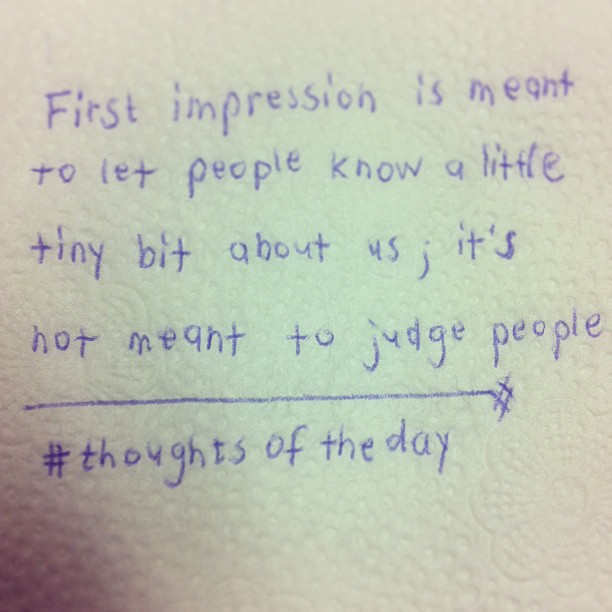 First impression is meant
to let people know a little
tiny bit about us; it's
not meant to judge people
#thoughts of the day